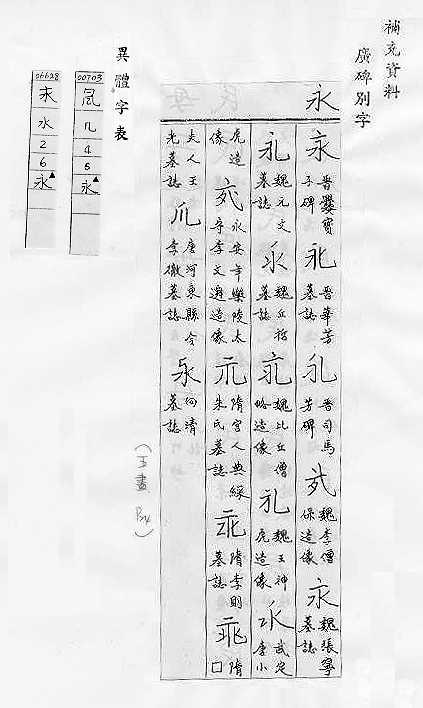 補充資料
廣碑別字
永
永 晉爨寶子碑
永 晉華芳墓誌
永 晉司馬芳碑
永 魏李僧保造像
永 魏張寧墓誌
永 魏元文墓誌
永 魏丘哲墓誌
永 魏比丘僧略造像
永 魏王神虎造像
永 武定李小虎造像
永 永安年樂陵太守李文遷造像
永 隋宮人典綵朱氏墓誌
永 隋李則墓誌
永 隋□夫人王光墓誌
永 唐河東縣令李徹墓誌
永 何靖墓誌
異體字表
00703
几
4
5
永▲
06628
水
2
6
永▲